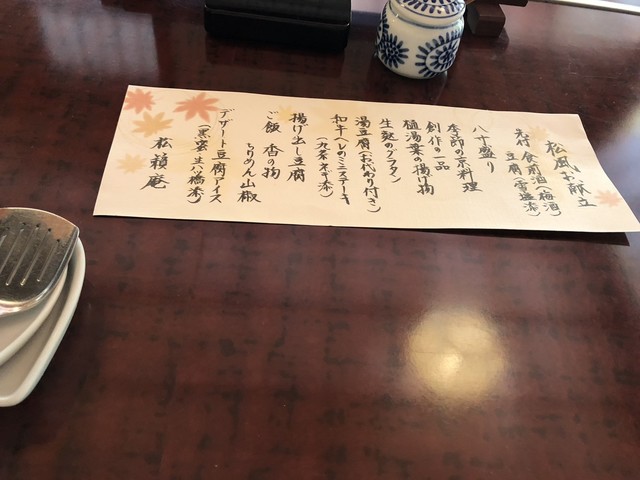 松風お献立
先付 食前酒(梅酒)
豆腐(雪塩添)
八寸盛り
季節の京料理
創作の一品
植湯葉の揚げ物
生麩のグラタン
湯豆腐(お代わり付き)
和牛ヘレのミニステーキ
(九条ネギ添)
揚げ出し豆腐
ご飯 香の物
ちりめん山椒
デザート豆腐アイス
(黒蜜 生八橋添)
松籟庵